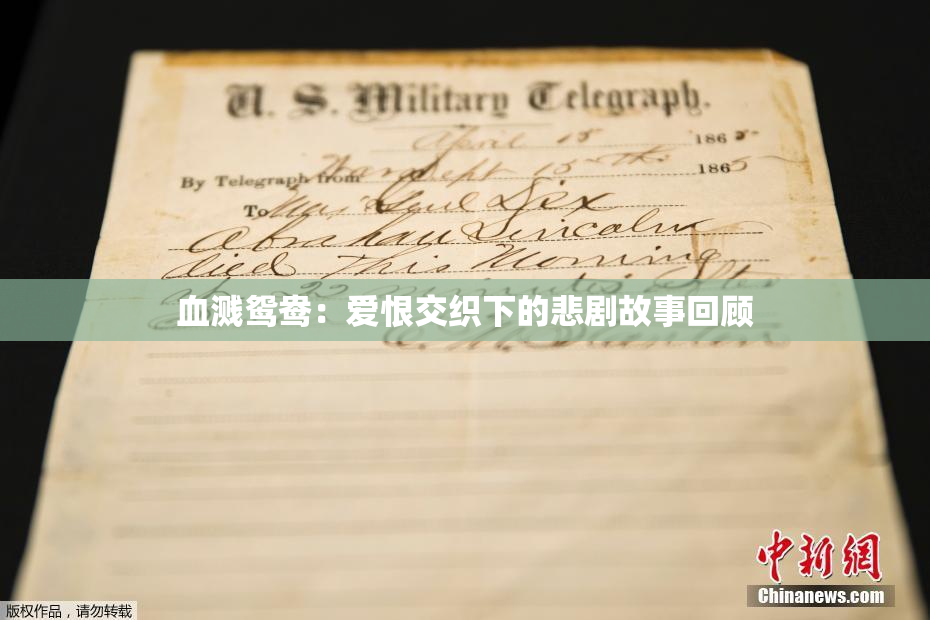 U. S. Military Telegraph.
April 15 1865
By Telegraph from War Dept 15th 1865
To Maj Genl Dix
Abraham Lincoln
died This Morning
22 minutes after
血溅鸳鸯：爱恨交织下的悲剧故事回顾
E. M. Stanton
中新网
Chinanews.com
版权作品，请勿转载